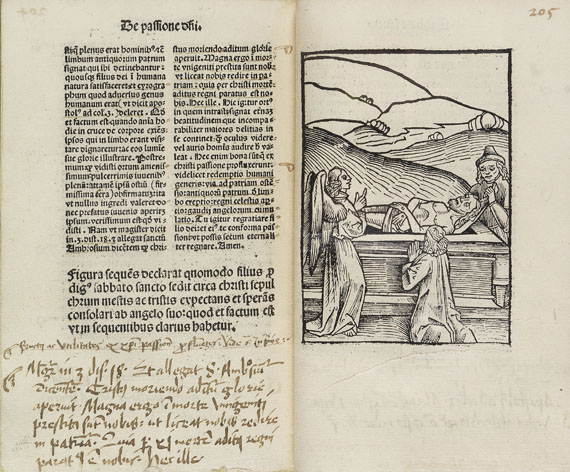 De passione dñi.
stiq̃ plenus erat hominibꝰ et
limbum antiquorum patrum
signat qui ibi detinebantur
quousq̃ filius dei ĩ humana
natura satisfaceret et cyrogra
phum quod adversus genus
humanum erat ut dicit apo
stolꝰ ad col. 2. deleret.
est factum est quando aĩa ho
die in cruce de corpore exiẽs
ipsos qui in limbo erant visi
tare dignaretur: ac eos lumine
sue glorie illustrare.
mum ut vidisti ortum ameni
ssimum pulcerrimis iuvenibꝰ
plenũ: attamẽ ipsa ostia
rissima sera) obfirmata: ita
ut nullus ingredi valeret do
nec prefatus iuvenis aperiret
ipsum. verissimum est q̃ vi
disti. Nam ut magister dicit
in. 3. dist. 18. allegat sanctũ
Ambrosium dicentem
stus moriendo aditum glorie
aperuit. Magna ergo ĩ mor
te unigeniti prestita sunt nobꝰ
ut liceat nobis redire in pa
triam: quia per christi mortẽ
aditus regni paratus est no
bis. Hec ille. Hic igitur ort
in quem intrasti signat etnaʒ
beatitudinem que incompa
rabiliter maiores delitias in
se continet. q̃ oculus videre
vel auris hominis audire
leat. Hec enim bona sunt
christi passione
videlicet redemptio humani
generis: via ad patriam oste
sio: antiquorum patrum
bo ereptio: regni celestis ap
tio: gaudij angelorum
latio. igitur regratiare fi
lio dei: et ei te conforma pas
sioni: ut possis secum eternali
ter regnare. Amen.
Figura sequẽs declarat quomodo filius p
digꝰ sabbato sancto sedit circa christi sepul
chrum mestus ac tristis expectans et sperãs
consolari ab angelo suo: quod et factum est
ut in sequentibus clarius habetur.
Magr̃ in 3 dist. 18. et allegat S. Ambrosiũ
Dicentẽ. Cristꝰ moriendo aditũ glorie
aperuit Magna ergo ĩ morte Unigeniti
prestita sũt nobis ut liceat nobis redire
in patriã. Quia p xi mortẽ aditꝰ regni
paratꝰ ẽ nobis Hec ille
205